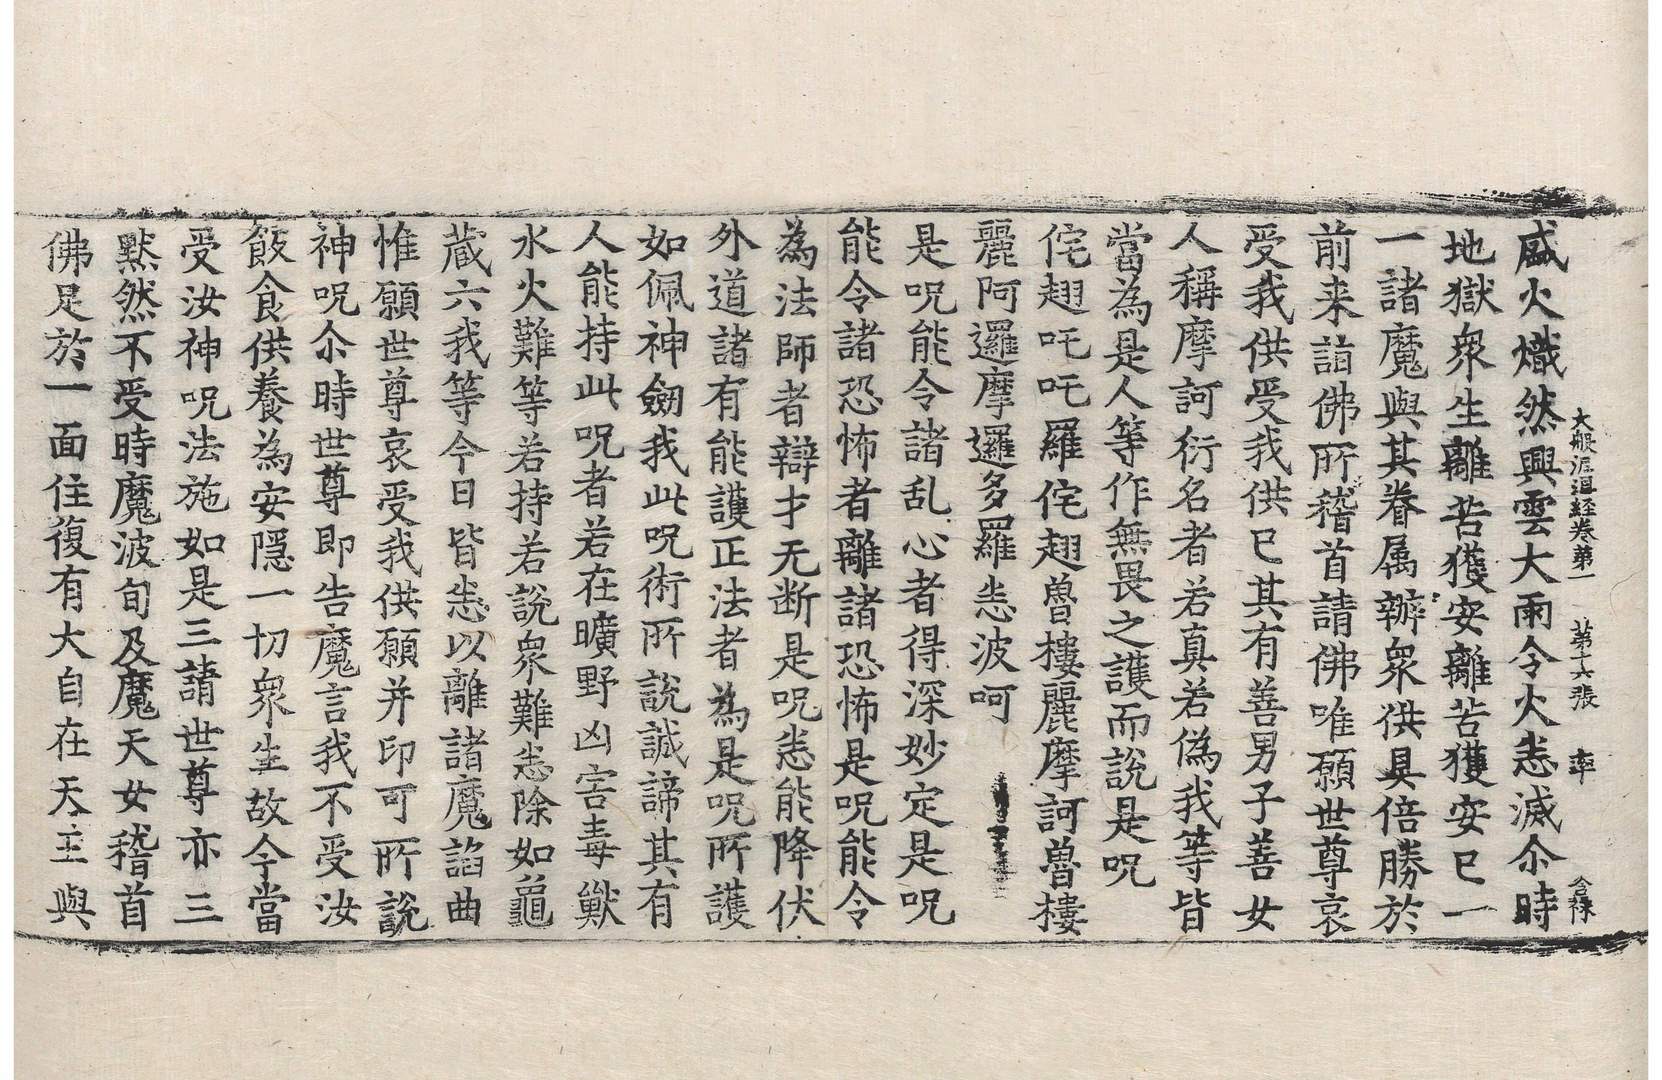 大般涅槃経卷第一　第十六張　率　合祿
盛火熾然興雲大雨令火悉滅尒時
地獄衆生離苦獲安離苦獲安已一
一諸魔與其眷属辦衆供具倍勝於
前来詣佛所稽首請佛唯願世尊哀
受我供受我供已其有善男子善女
人稱摩訶衍名者若真若偽我等皆
當為是人等作無畏之護而說是呪
侘翅吒吒羅侘翅魯樓麗摩訶魯樓
麗阿邏摩邏多羅悉波呵
是呪能令諸乱心者得深妙定是呪
能令諸恐怖者離諸恐怖是呪能令
為法師者辯才无断是呪悉能降伏
外道諸有能護正法者為是呪所護
如佩神劒我此呪術所說誠諦其有
人能持此呪者若在曠野凶害毒獸
水火難等若持若說衆難悉除如龜
蔵六我等今日皆悉以離諸魔諂曲
惟願世尊哀受我供願并印可所說
神呪尒時世尊即告魔言我不受汝
飯食供養為安隱一切衆生故今當
受汝神呪法施如是三請世尊亦三
黙然不受時魔波旬及魔天女稽首
佛足於一面住復有大自在天主與